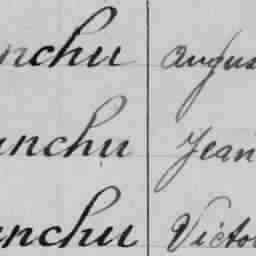 nchu Augus
anchu Jean
anchu Victo